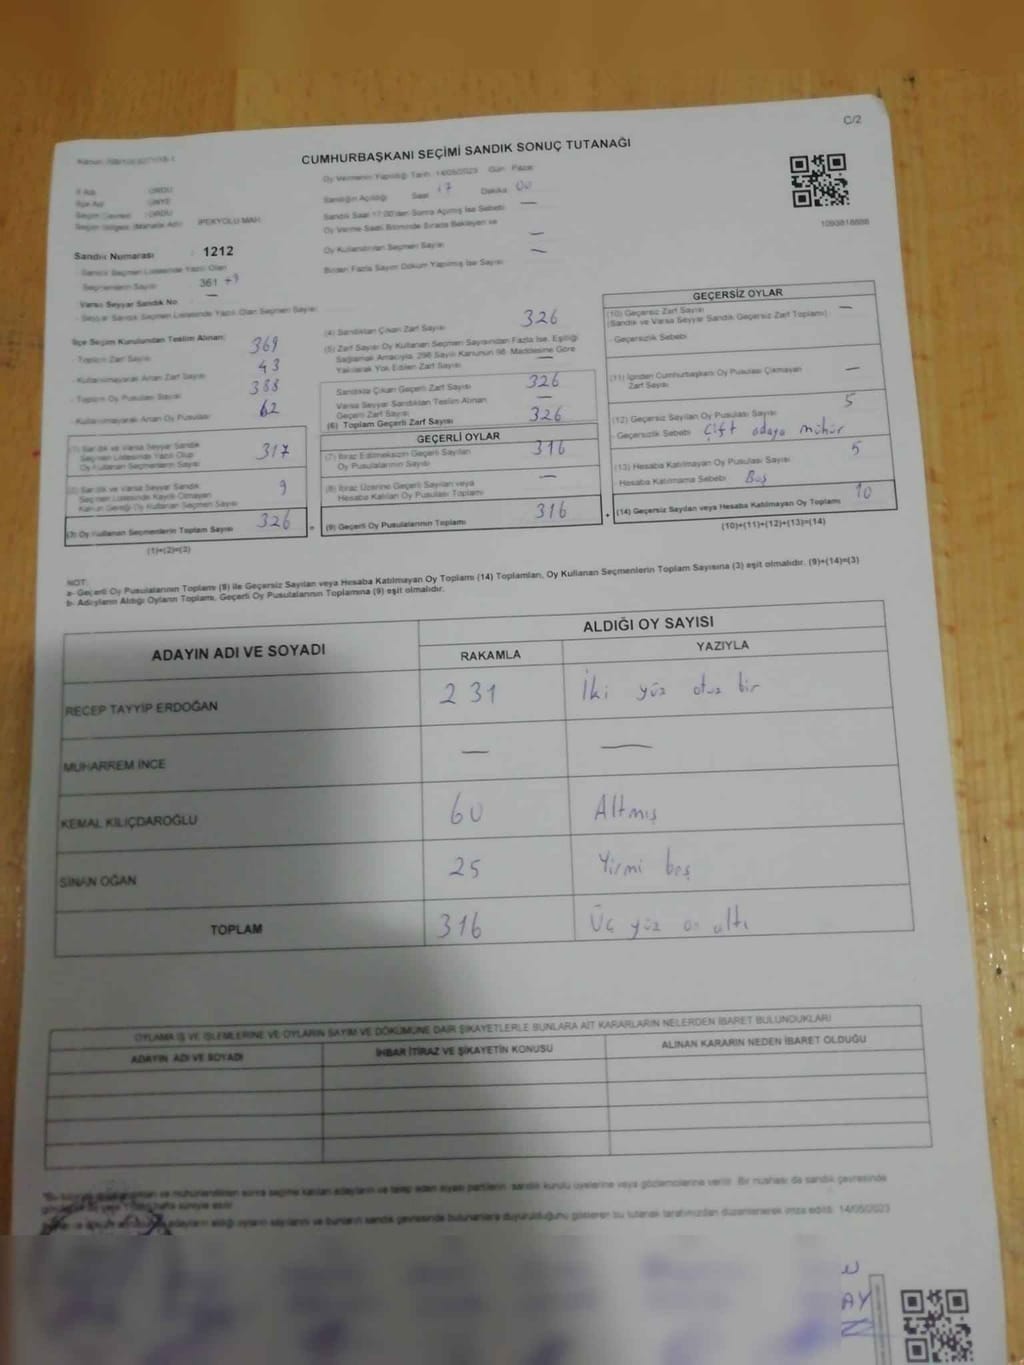 C/2
CUMHURBAŞKANI SEÇİMİ SANDIK SONUÇ TUTANAĞI
Oy Vermenin Yapıldığı Tarih: 14/05/2023 Gün: Pazar
İl Adı : ORDU
Sandığın Açıldığı Saat 17 Dakika 00
İlçe Adı : ÜNYE
Sandık Saat 17.00'den Sonra Açılmış İse Sebebi —
Seçim Çevresi : ORDU
Oy Verme Saati Bitiminde Sırada Bekleyen ve
Seçim Bölgesi (Mahalle Adı) : İPEKYOLU MAH.
Oy Kullandırılan Seçmen Sayısı —
Sandık Numarası : 1212
Birden Fazla Sayım Döküm Yapılmış İse Sayısı —
- Sandık Seçmen Listesinde Yazılı Olan
Seçmenlerin Sayısı : 361 +9
Varsa Seyyar Sandık No —
- Seyyar Sandık Seçmen Listesinde Yazılı Olan Seçmen Sayısı
İlçe Seçim Kurulundan Teslim Alınan:
- Toplam Zarf Sayısı 369
- Kullanılmayarak Artan Zarf Sayısı 43
- Toplam Oy Pusulası Sayısı 388
- Kullanılmayarak Artan Oy Pusulası 62
(1) Sandık ve Varsa Seyyar Sandık
Seçmen Listesinde Yazılı Olup
Oy Kullanan Seçmenlerin Sayısı 317
(2) Sandık ve Varsa Seyyar Sandık
Seçmen Listesinde Kayıtlı Olmayan
Kanun Gereği Oy Kullanan Seçmen Sayısı 9
(3) Oy Kullanan Seçmenlerin Toplam Sayısı 326
(1)+(2)=(3)
(4) Sandıktan Çıkan Zarf Sayısı 326
(5) Zarf Sayısı Oy Kullanan Seçmen Sayısından Fazla İse, Eşitliği
Sağlamak Amacıyla, 298 Sayılı Kanunun 98. Maddesine Göre
Yakılarak Yok Edilen Zarf Sayısı —
Sandıkta Çıkan Geçerli Zarf Sayısı 326
Varsa Seyyar Sandıktan Teslim Alınan
Geçerli Zarf Sayısı —
(6) Toplam Geçerli Zarf Sayısı 326
GEÇERLİ OYLAR
(7) İtiraz Edilmeksizin Geçerli Sayılan
Oy Pusulalarının Sayısı 316
(8) İtiraz Üzerine Geçerli Sayılan veya
Hesaba Katılan Oy Pusulası Toplamı —
= (9) Geçerli Oy Pusulalarının Toplamı 316
GEÇERSİZ OYLAR
(10) Geçersiz Zarf Sayısı —
(Sandık ve Varsa Seyyar Sandık Geçersiz Zarf Toplamı)
- Geçersizlik Sebebi
(11) İçinden Cumhurbaşkanı Oy Pusulası Çıkmayan
Zarf Sayısı —
(12) Geçersiz Sayılan Oy Pusulası Sayısı 5
- Geçersizlik Sebebi Çift adaya mühür
(13) Hesaba Katılmayan Oy Pusulası Sayısı 5
- Hesaba Katılmama Sebebi Boş
+ (14) Geçersiz Sayılan veya Hesaba Katılmayan Oy Toplamı 10
(10)+(11)+(12)+(13)=(14)
NOT:
a- Geçerli Oy Pusulalarının Toplamı (9) ile Geçersiz Sayılan veya Hesaba Katılmayan Oy Toplamı (14) Toplamları, Oy Kullanan Seçmenlerin Toplam Sayısına (3) eşit olmalıdır. (9)+(14)=(3)
b- Adayların Aldığı Oyların Toplamı, Geçerli Oy Pusulalarının Toplamına (9) eşit olmalıdır.
ADAYIN ADI VE SOYADI ALDIĞI OY SAYISI
RAKAMLA YAZIYLA
RECEP TAYYİP ERDOĞAN 231 İki yüz otuz bir
MUHARREM İNCE — —
KEMAL KILIÇDAROĞLU 60 Altmış
SİNAN OĞAN 25 Yirmi beş
TOPLAM 316 Üç yüz on altı
OYLAMA İŞ VE İŞLEMLERİNE VE OYLARIN SAYIM VE DÖKÜMÜNE DAİR ŞİKAYETLERLE BUNLARA AİT KARARLARIN NELERDEN İBARET BULUNDUKLARI
ADAYIN ADI VE SOYADI İHBAR İTİRAZ VE ŞİKAYETİN KONUSU ALINAN KARARIN NEDEN İBARET OLDUĞU
sandık kurulu üyelerine veya gözlemcilerine verilir. Bir nüshası da sandık çevresinde
adayların aldığı oyların sayılarını ve bunların sandık çevresinde bulunanlara duyurulduğunu gösteren bu tutanak tarafımızdan düzenlenerek imza edildi. 14/05/2023